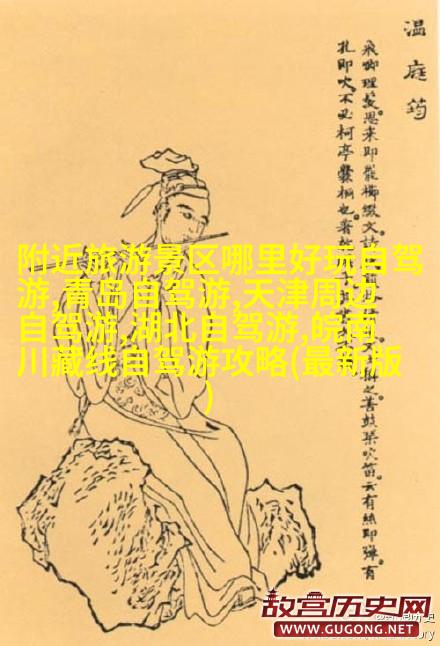 温庭筠
飛卿理髮思来即罷櫛綴文
孔即吹不必柯亭爨桐也著
之善鼓琴吹笛云有絲即彈有
附近旅游景区哪里好玩自驾
游,青岛自驾游,天津周边
自驾游,湖北自驾游,皖南
川藏线自驾游攻略(最新版
)
故宫历史网
WWW.GUGONG.NET